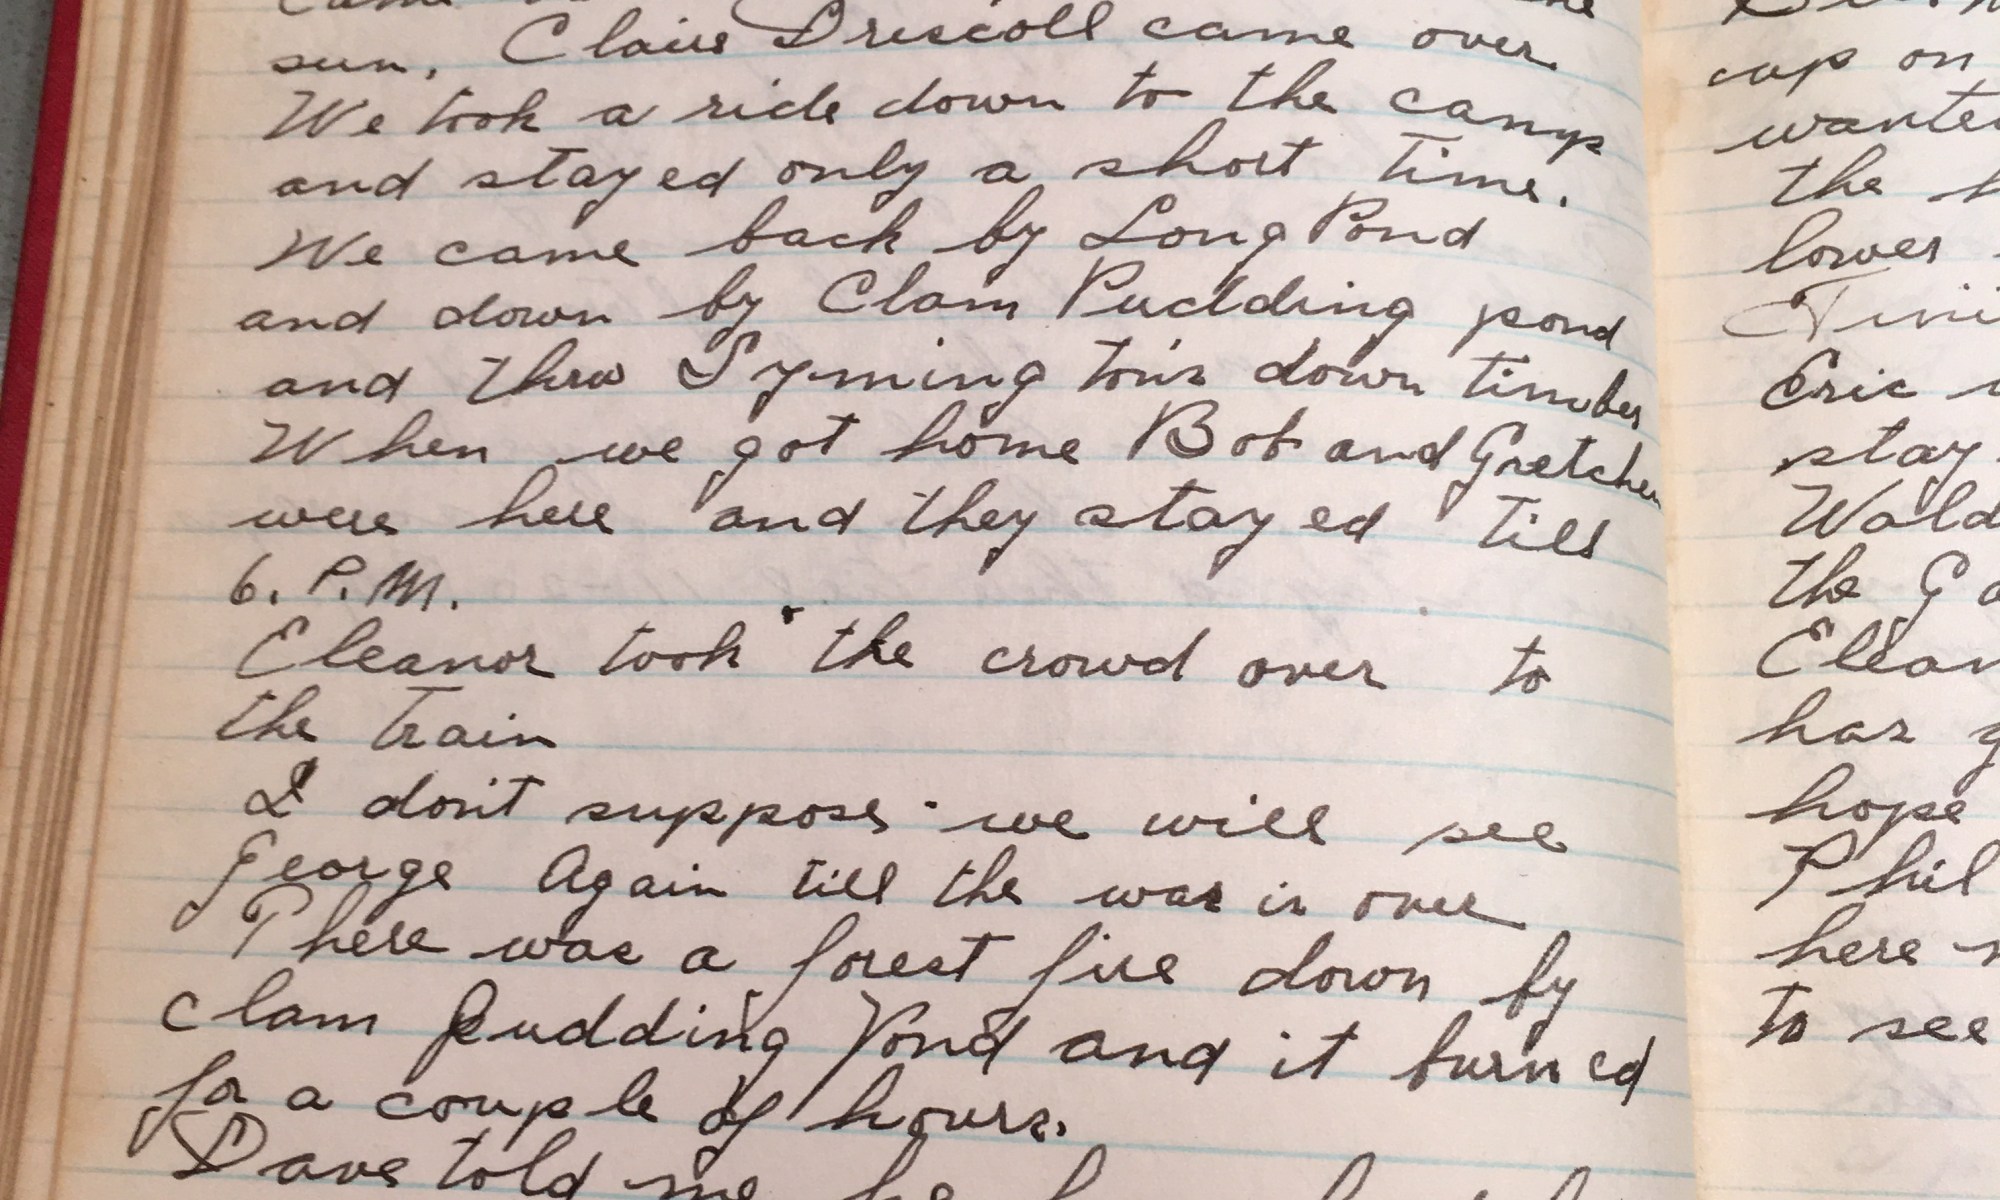 sun. Claire Driscoll came over
We took a ride down to the camp
and stayed only a short time.
We came back by Long Pond
and down by Clam Pudding pond
and thru Symington's down timber
When we got home Bob and Gretchen
were here and they stayed till
6. P.M.
Eleanor took the crowd over to
the train
I don't suppose we will see
George Again till the war is over
There was a forest fire down by
Clam Pudding Pond and it burned
for a couple of hours.
Dave told me he
cup on
wanted
the
lower
Eric
stay
the
has
hope
Phil
here
to see